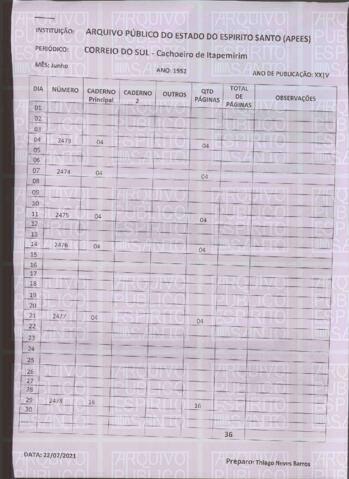 INSTITUIÇÃO: ARQUIVO PÚBLICO DO ESTADO DO ESPIRITO SANTO (APEES)
PERIÓDICO: CORREIO DO SUL - Cachoeiro de Itapemirim
MÊS: Junho ANO: 1952 ANO DE PUBLICAÇÃO: XXIV
DIA NÚMERO CADERNO Principal CADERNO 2 OUTROS QTD PÁGINAS TOTAL DE PÁGINAS OBSERVAÇÕES
01
02
03
04 2473 04 04
05
06
07 2474 04 04
08
09
10
11 2475 04 04
12
13
14 2476 04 04
15
16
17
18
19
20
21 2477 04 04
22
23
24
25
26
27
28
29 2478 16 16
30
36
DATA: 22/02/2021 Preparo: Thiago Neves Barros